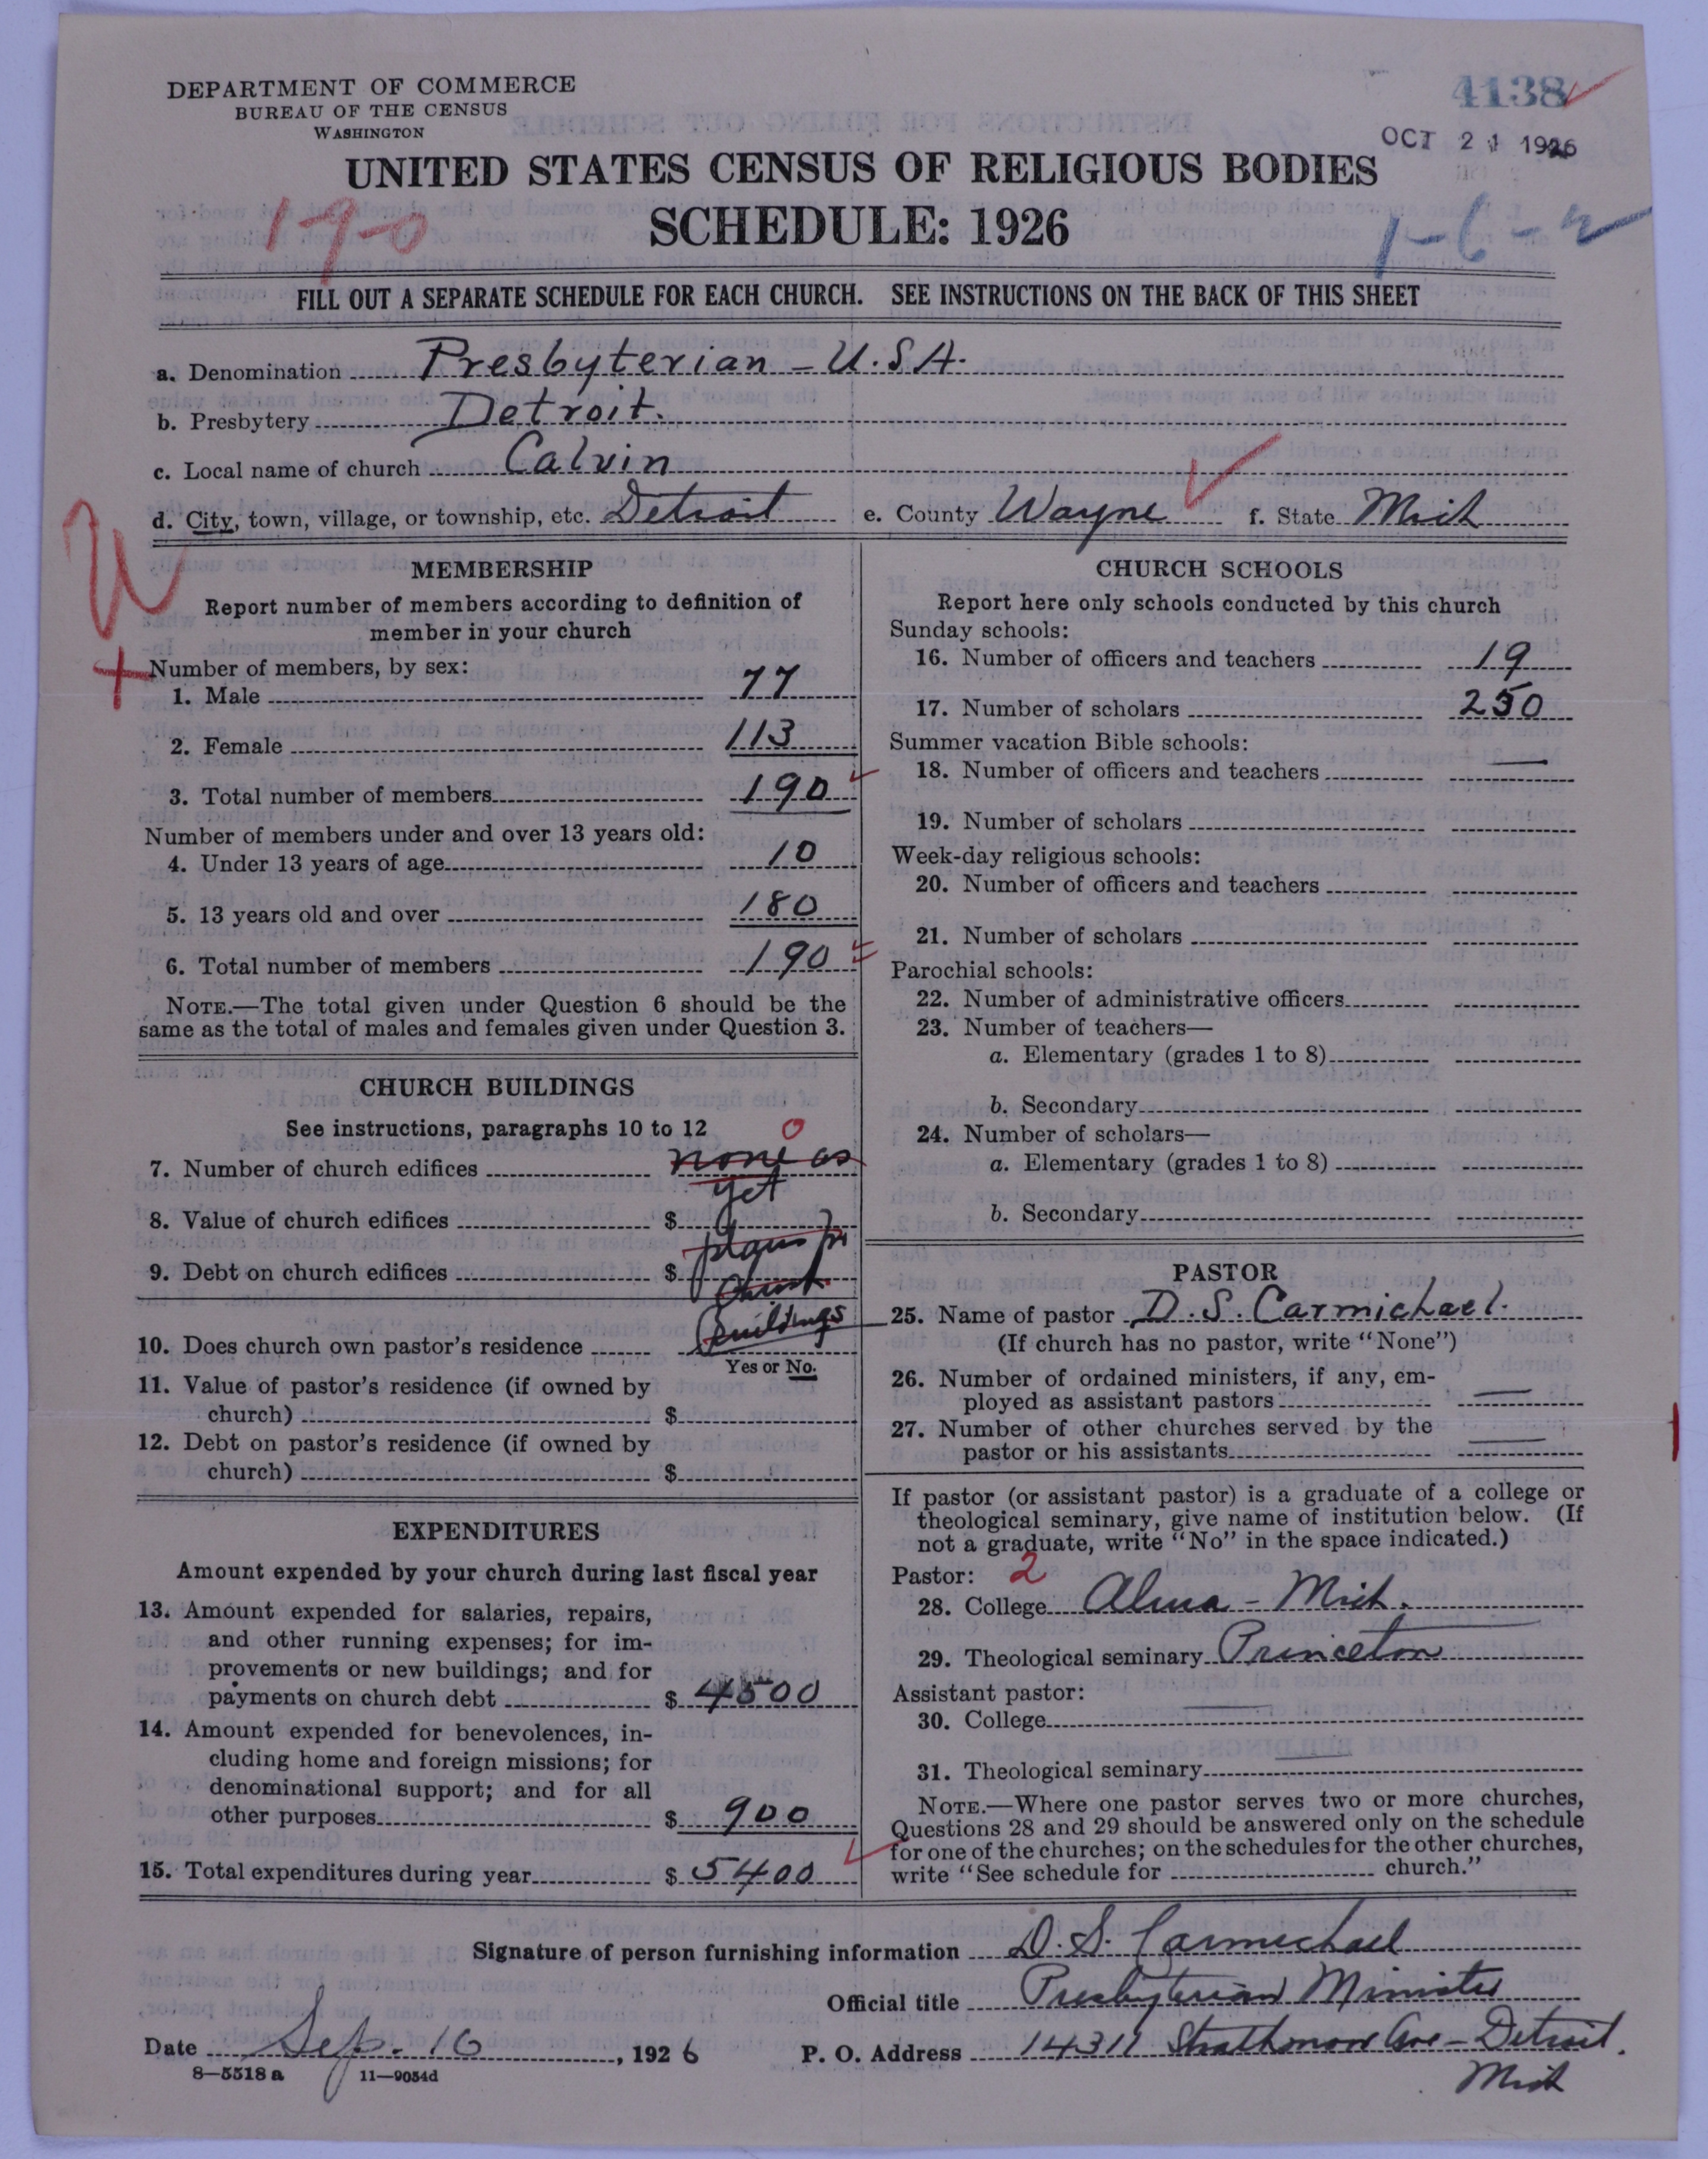 DEPARTMENT OF COMMERCE
BUREAU OF THE CENSUS
WASHINGTON
4138
OCT 21 1926
UNITED STATES CENSUS OF RELIGIOUS BODIES
SCHEDULE: 1926
190
FILL OUT A SEPARATE SCHEDULE FOR EACH CHURCH. SEE INSTRUCTIONS ON THE BACK OF THIS SHEET
a. Denomination Presbyterian - U.S.A.
b. Presbytery Detroit.
c. Local name of church Calvin
d. City, town, village, or township, etc. Detroit e. County Wayne f. State Mich
MEMBERSHIP
Report number of members according to definition of
member in your church
Number of members, by sex:
1. Male 77
2. Female 113
3. Total number of members 190
Number of members under and over 13 years old:
4. Under 13 years of age 10
5. 13 years old and over 180
6. Total number of members 190
NOTE.—The total given under Question 6 should be the
same as the total of males and females given under Question 3.
CHURCH BUILDINGS
See instructions, paragraphs 10 to 12
0
7. Number of church edifices none as
yet
8. Value of church edifices $
plans for
9. Debt on church edifices $
Buildings
10. Does church own pastor's residence
Yes or No.
11. Value of pastor's residence (if owned by
church) $
12. Debt on pastor's residence (if owned by
church) $
EXPENDITURES
Amount expended by your church during last fiscal year
13. Amount expended for salaries, repairs,
and other running expenses; for im-
provements or new buildings; and for
payments on church debt $ 4500
14. Amount expended for benevolences, in-
cluding home and foreign missions; for
denominational support; and for all
other purposes $ 900
15. Total expenditures during year $ 5400
CHURCH SCHOOLS
Report here only schools conducted by this church
Sunday schools:
16. Number of officers and teachers 19
17. Number of scholars 250
Summer vacation Bible schools:
18. Number of officers and teachers —
19. Number of scholars
Week-day religious schools:
20. Number of officers and teachers
21. Number of scholars
Parochial schools:
22. Number of administrative officers
23. Number of teachers—
a. Elementary (grades 1 to 8)
b. Secondary
24. Number of scholars—
a. Elementary (grades 1 to 8)
b. Secondary
PASTOR
25. Name of pastor D. S. Carmichael.
(If church has no pastor, write "None")
26. Number of ordained ministers, if any, em-
ployed as assistant pastors —
27. Number of other churches served by the
pastor or his assistants —
If pastor (or assistant pastor) is a graduate of a college or
theological seminary, give name of institution below. (If
not a graduate, write "No" in the space indicated.)
Pastor: 2
28. College Alma - Mich.
29. Theological seminary Princeton
Assistant pastor:
30. College —
31. Theological seminary —
NOTE.—Where one pastor serves two or more churches,
Questions 28 and 29 should be answered only on the schedule
for one of the churches; on the schedules for the other churches,
write "See schedule for church."
Signature of person furnishing information D. S. Carmichael
Official title Presbyterian Minister
Date Sep. 16, 1926 P. O. Address 14311 Strathmoor Ave - Detroit.
Mich
8—5518 a 11—9054d